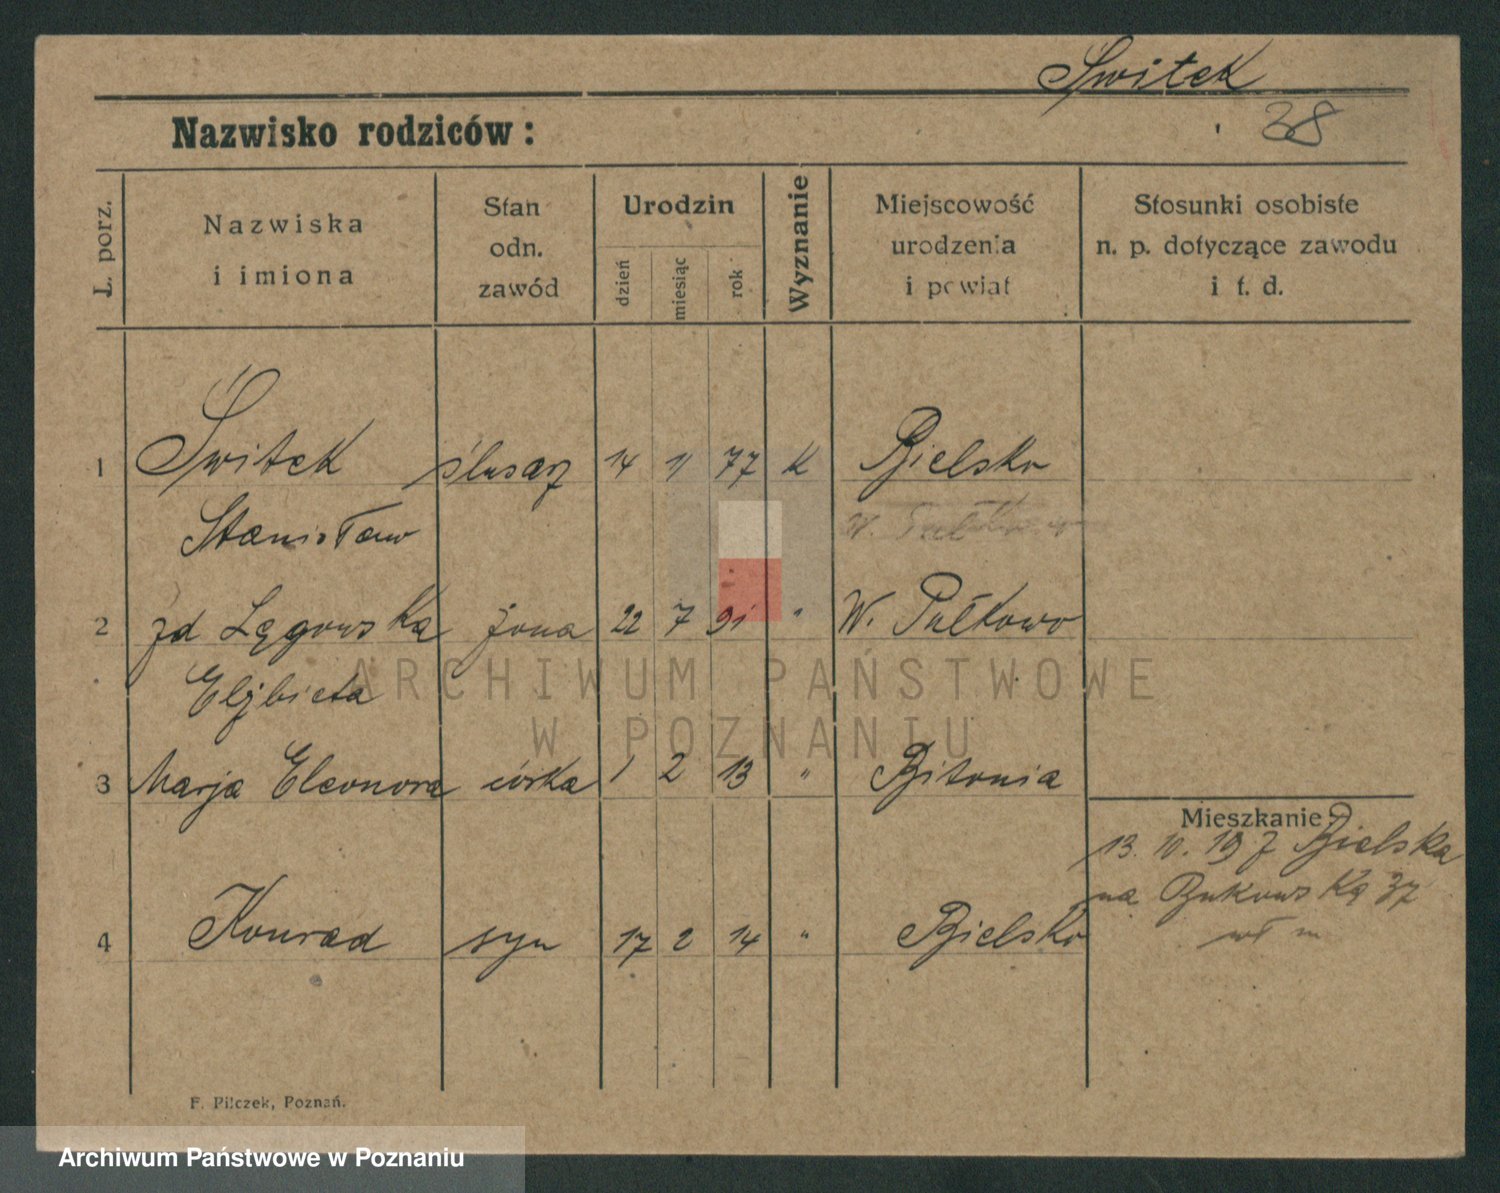 Switek
38
Nazwisko rodziców:
L. porz.
Nazwiska
i imiona
Stan
odn.
zawód
Urodzin
dzień
miesiąc
rok
Wyznanie
Miejscowość
urodzenia
i powiat
Stosunki osobiste
n. p. dotyczące zawodu
i t. d.
1 Świtek ślusarz 14 11 77 K Bielsko
Stanisław
2 zd Łęgowska żona 22 7 91 " W. Pułkowo
Elżbieta
3 Marja Eleonora córka 1 2 13 " Bitonia
Mieszkanie:
13. 10. 19 z Bielska
na Bukowską 37
4 Konrad syn 17 2 14 " Bielsko
F. Pilczek, Poznań.
ARCHIWUM PAŃSTWOWE
W POZNANIU
Archiwum Państwowe w Poznaniu